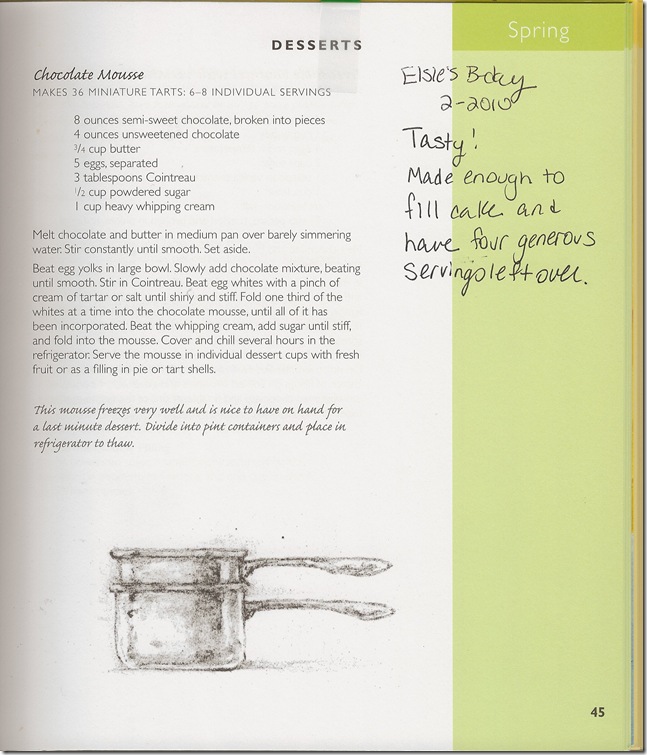 Spring
DESSERTS
Chocolate Mousse
MAKES 36 MINIATURE TARTS: 6–8 INDIVIDUAL SERVINGS
8 ounces semi-sweet chocolate, broken into pieces
4 ounces unsweetened chocolate
3/4 cup butter
5 eggs, separated
3 tablespoons Cointreau
1/2 cup powdered sugar
1 cup heavy whipping cream
Melt chocolate and butter in medium pan over barely simmering
water. Stir constantly until smooth. Set aside.
Beat egg yolks in large bowl. Slowly add chocolate mixture, beating
until smooth. Stir in Cointreau. Beat egg whites with a pinch of
cream of tartar or salt until shiny and stiff. Fold one third of the
whites at a time into the chocolate mousse, until all of it has
been incorporated. Beat the whipping cream, add sugar until stiff,
and fold into the mousse. Cover and chill several hours in the
refrigerator. Serve the mousse in individual dessert cups with fresh
fruit or as a filling in pie or tart shells.
This mousse freezes very well and is nice to have on hand for
a last minute dessert. Divide into pint containers and place in
refrigerator to thaw.
Elsie's Bday
2-2010
Tasty!
Made enough to
fill cake and
have four generous
servings left over.
45